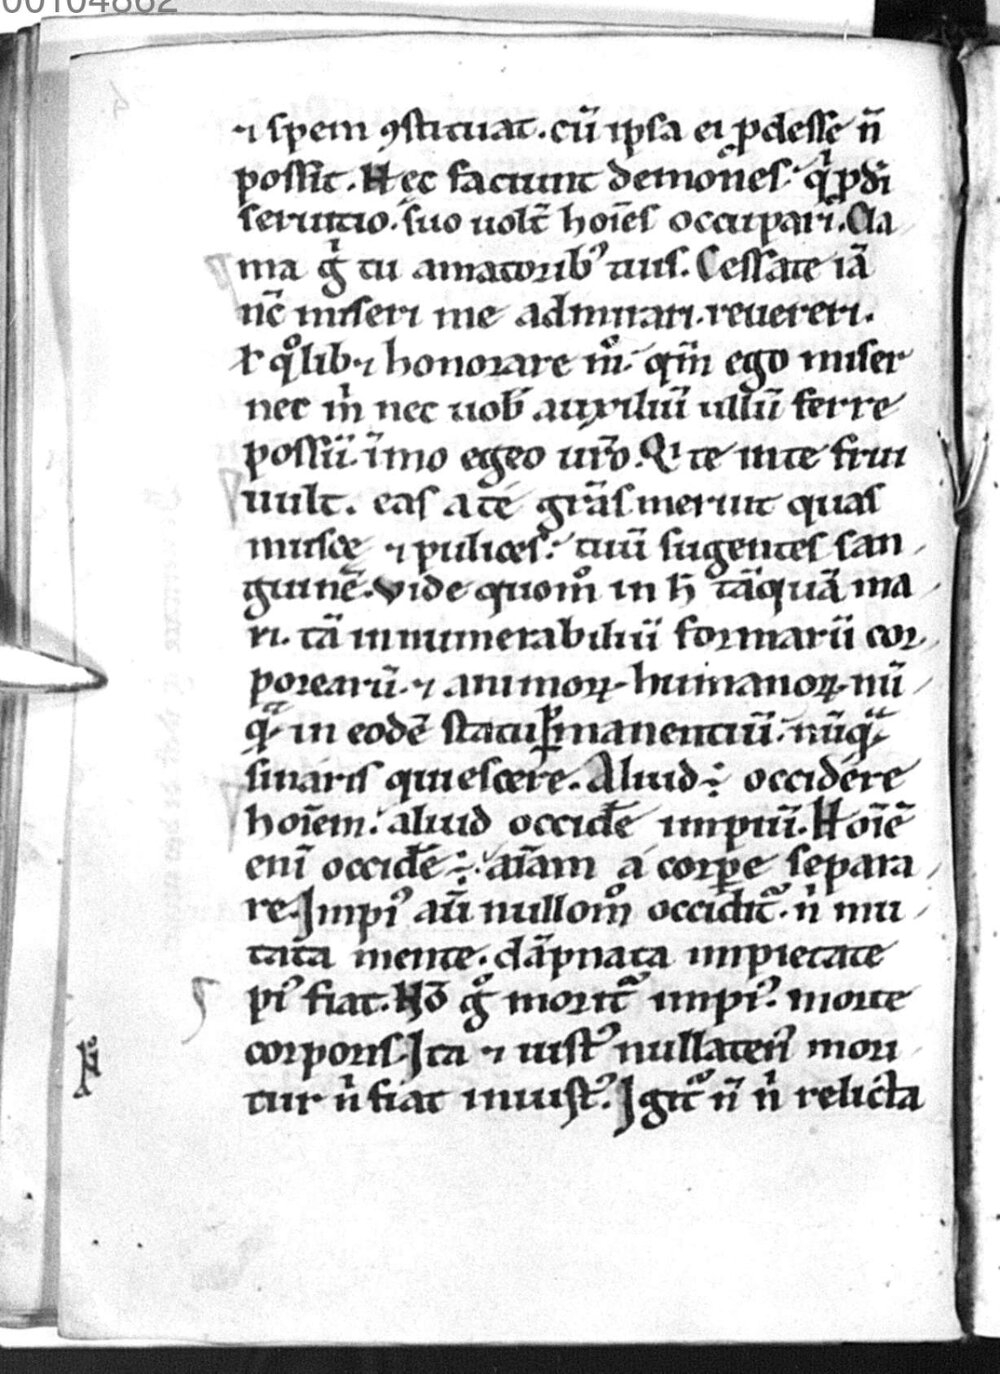 00104862
⁊ spem ꝯstituat. cū ipsa ei ꝓdesse n̄
possit. Hęc faciunt demones. qͥ ꝓdi
seruitio suo uolt̄ hoīes occupari. Cla
ma gͥ tu amatoribꝰ tuis. Cessate iā
nc̄ miseri me admirari. reuereri.
ł qͦlib⁊ honorare mͦ. qm̄ ego miser
nec mͥ nec uob̄ auxiliū ullū ferre
possū. īmo egeo ur̄o. Qͥ te in te frui
uult. eas a te grās meruit quas
musce ⁊ pulices. tuū sugentes san
guinē. Vide quomͦ in h̄ tāquā ma
ri. tā innumerabiliū formarū cor
porearū. ⁊ animoꝝ humanoꝝ. nū
qͣ in eodē statu ꝑmanentiū. nūqͣ
sinaris quiescere. Aliud ÷ occidere
hoīem. aliud occidē impiū. Hoīē
enī occidē ÷. aīam a corꝑe separa
re. Impiꝰ aū nullomͦ occidit᷑. nͥ mu
tata mente. dāpnata impietate
piꝰ fiat. Nō gͦ morit᷑ impiꝰ. morte
corporis. Ita ⁊ iustꝰ nullatenꝰ mori
tur nͥ fiat iniustꝰ. Igit᷑ n̄ nͥ relicta